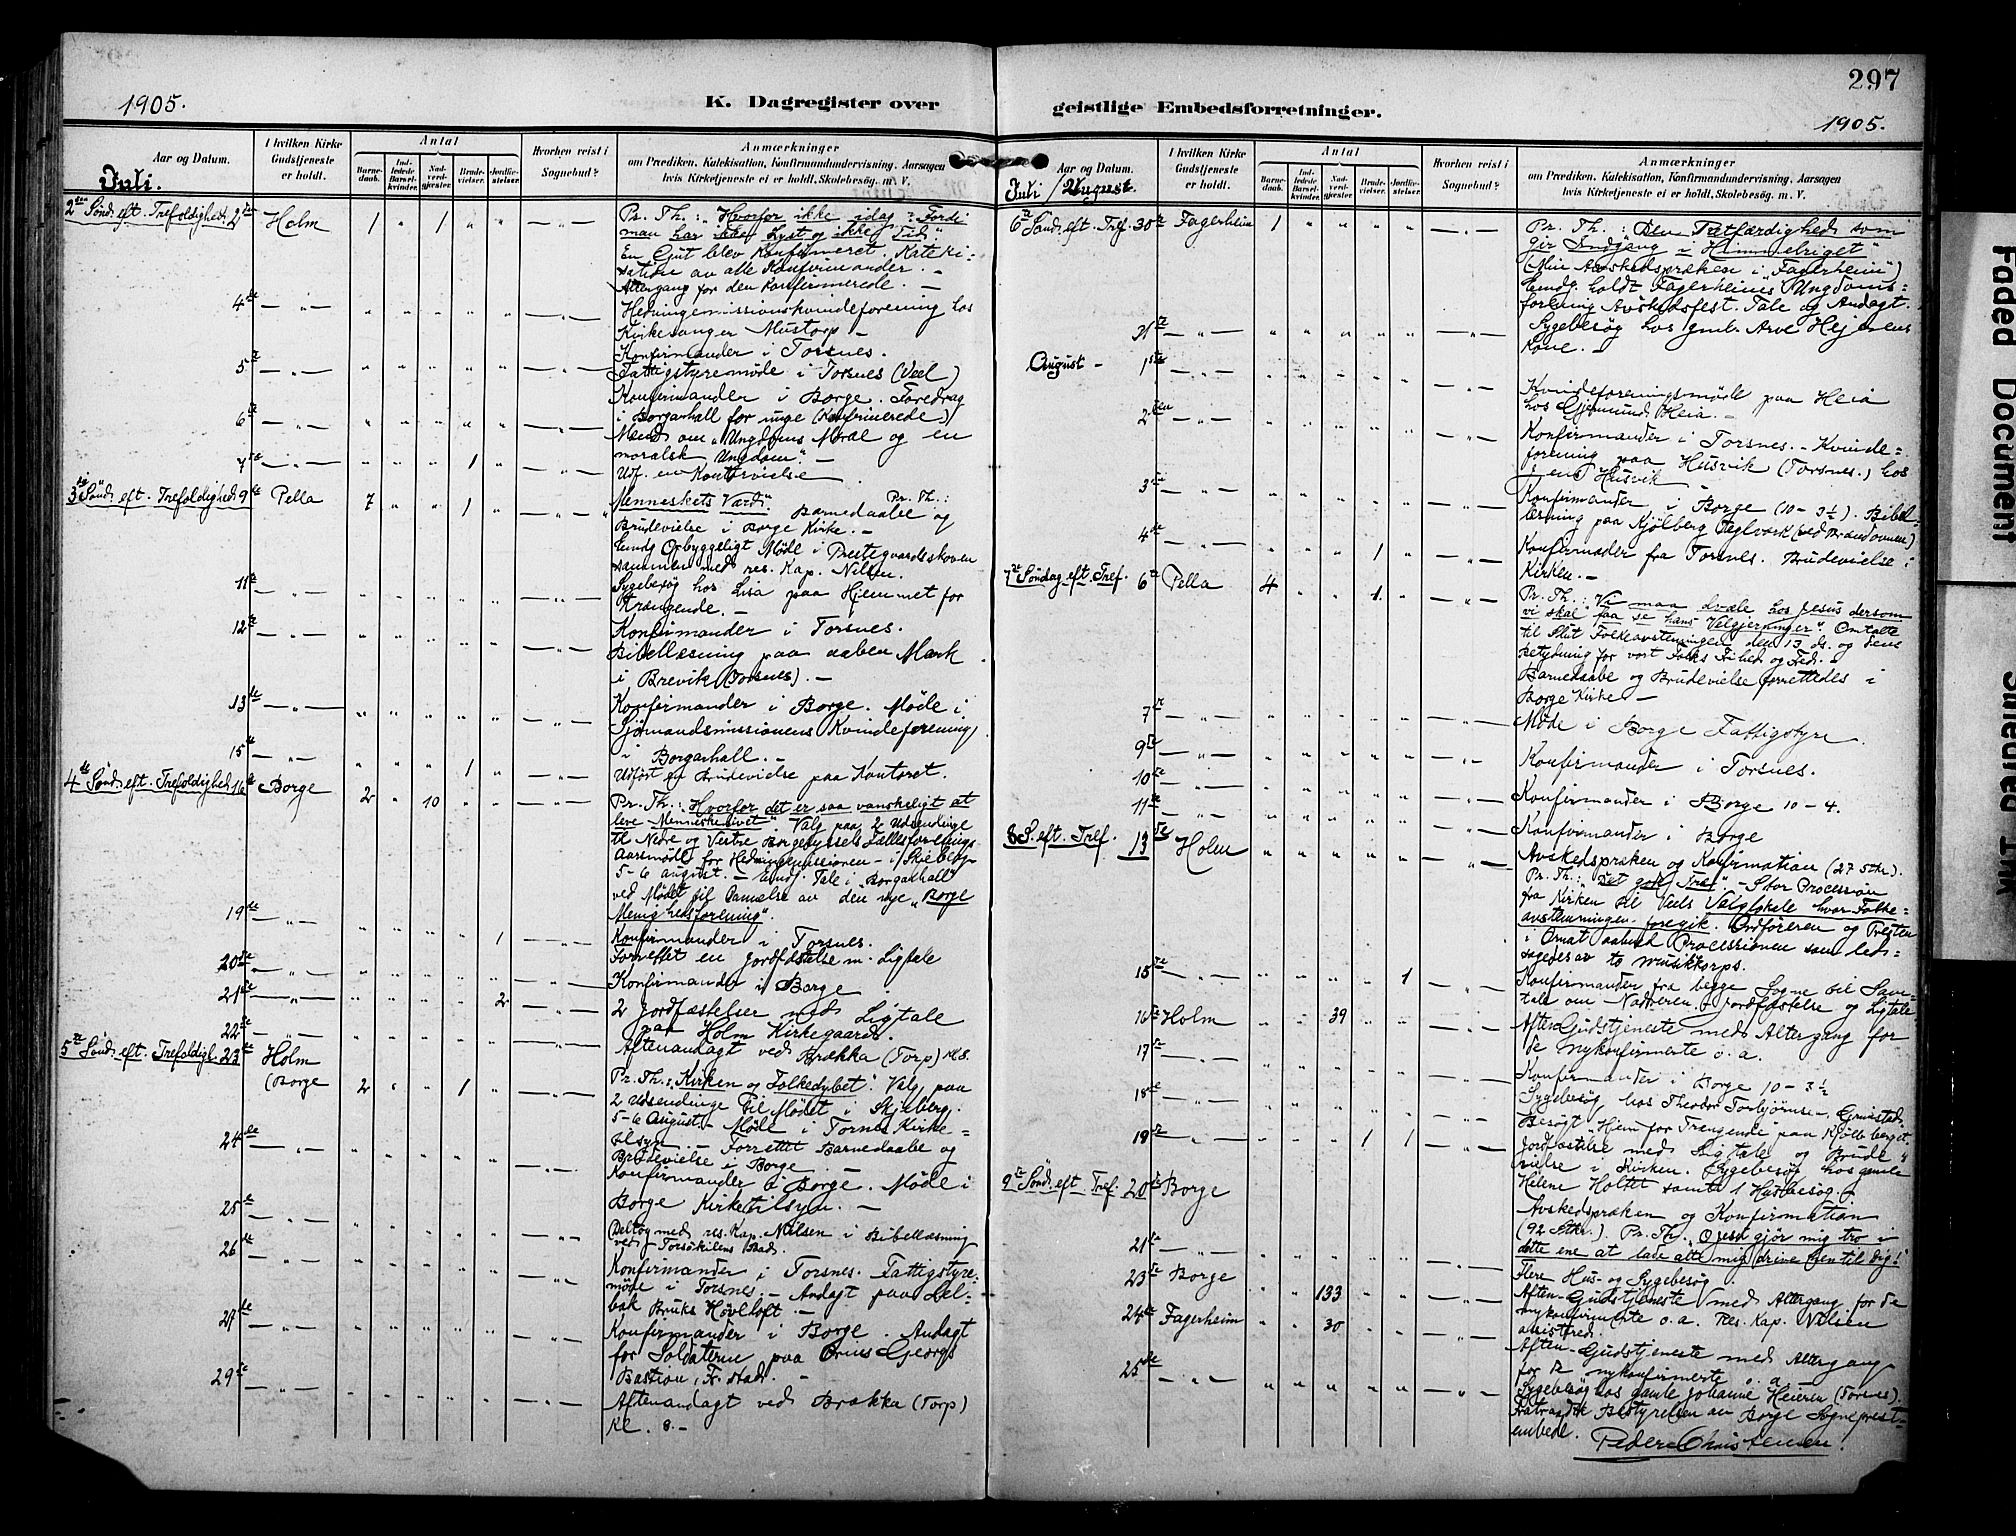 297
1905.
K. Dagregister over
geistlige Embedsforretninger.
1905.
Aar og Datum.
I hvilken Kirke Gudstjeneste er holdt.
Antal
Barnedaab.
Indledede Barselkvinder.
Nadverdgjester.
Brudevielser.
Jordfæstelser.
Hvorhen reist i Sognebud?
Anmærkninger
om Prædiken, Katekisation, Konfirmandundervisning, Aarsagen
hvis Kirketjeneste ei er holdt, Skolebesøg. m. V.
Juli.
2den Sønd. eft. Trefoldighed 2den Holm 1 " 1 " "
Pr. Th.: "Hvorfor ikke idag? Fordi
man har ikke Lyst og ikke Tid"
En Gut blev Konfirmeret. Kateki-
sation av alle Konfirmander. -
Altergang for den Konfirmerede. -
4de
Hedningemissionskvindeforening hos
Kirkesanger Mustorp -
Konfirmander i Torsnes.
5te
Fattigstyremøde i Torsnes (Veel)
Konfirmander i Borge. Foredrag
i Borgarhall for unge (konfirmerede)
6te
Mænd om "Ungdoms Moral og en
moralsk Ungdom". -
7de 1
Udf. en Kontorvielse
3die Sønd. eft. Trefoldighed 9de Pella 7 " " 1 "
"Menneskets Værd". Pr. Th.:
Barnedaabe og
Brudevielse i Borge Kirke. -
Eundg Opbyggeligt Møde i Prestegaardsskoven
sammen med res. Kap. Nilsen.
11te
Sygebesøg hos Lisa paa Hjemmet for
Trængende. -
12te
Konfirmander i Torsnes.
Bibellæsning paa aaben Mark
i Brevik (Torsnes). -
13de
Konfirmander i Borge. Møde i
Sjømandsmissionens Kvindeforening
i Borgarhall. -
15de 1
Udført en Brudevielse paa Kontoret.
4de Sønd. eft. Trefoldighed 16de Borge 2 " 10 " "
Pr. Th.: "Hvorfor det er saa vanskeligt at
leve Menneskelivet" Valg paa 2 Udsendinge
til Nedre og Vestre Borgesyssels Fællesforenings
Aarsmøde for Hedningemissionen - i Skjeberg
5-6 august. - Eundg. Tale i "Borgarhall"
ved Mødet til Dannelse av den nye "Borge
Menighedsforening".
19de 1
Konfirmander i Torsnes.
Forrettet en Jordfæstelse m. Ligtale
20de
Konfirmander i Borge
21de 2
2 Jordfæstelser med Ligtale
paa Holm Kirkegaard.
22de
Aftenandagt ved Brækka (Torp) Kl. 8.
5te Sønd. eft. Trefoldigh. 23de Holm
(Borge 2 " " 1 "
Pr. Th.: "Kirken og Folkedybet". Valg paa
2 Udsendinge til Mødet i Skjeberg.
5-6 August. - Møde i Torsnes Kirke-
tilsyn. - Forrettet Barnedaabe og
Brudevielse i Borge. -
24de
Konfirmander i Borge. Møde i
Borge Kirketilsyn. -
25de
Deltog med res. Kap. Nilsen i Bibellæsning
ved Torsøkilens Bad.
26de
Konfirmander i Torsnes. Fattigstyre-
møde i Torsnes. - Andagt paa Sel-
bak Bruks Høvleloft. -
27de
Konfirmander i Borge. Andagt
for Soldaterne paa Prins Georgs
Bastion, Fr. stad. -
29de
Aftenandagt ved Brækka (Torp)
Kl. 8. -
Aar og Datum.
I hvilken Kirke Gudstjeneste er holdt.
Antal
Barnedaab.
Indledede Barselkvinder.
Nadverdgjester.
Brudevielser.
Jordfæstelser.
Hvorhen reist i Sognebud?
Anmærkninger
om Prædiken, Katekisation, Konfirmandundervisning, Aarsagen
hvis Kirketjeneste ei er holdt, Skolebesøg. m. V.
Juli / August.
6te Sønd. eft. Tref. 30te Fagerheim 1 " " " "
Pr. Th.: "Den Retfærdighed som
gir Indgang i Himmelriget"
(Min Avskedspræken i "Fagerheim")
Eundg. holdt Fagerheims Ungdoms-
forening Avskedsfest. Tale og Andagt.
31te
Sygebesøg hos gml. Arve Hejenens
Kone. -
August - 1ste
Kvindeforeningsmøde paa Heia
hos Gjermund Heia. -
2den
Konfirmander i Torsnes. - Kvinde-
forening paa Husvik (Torsnes.) hos
Jens Husvik
3die
Konfirmander i Borge (10-3½). Bibel-
læsning paa Kjølberg Teglverk (ved Brændovnen)
4de 1
Konfirmander fra Torsnes. Brudevielse i
Kirken. -
7de Søndag eft. Tref. 6te Pella 4 " " 1 "
Pr. Th.: "Vi maa dvæle hos Jesus dersom
vi skal faa se hans Velgjerninger". Omtalte
til Slut Folkeavstemningen den 13 ds. og dens
Betydning for vort Folks Frihed og Fred. -
Barnedaabe og Brudevielse forrettedes i
Borge Kirke -
7de
Møde i Borge Fattigstyre.
9de
Konfirmander i Torsnes.
10de
Konfirmander i Borge 10-4.
11te
Konfirmander i Borge
8 S. eft. Tref. 13de Holm
Avskedspræken og Konfirmation (27 Stkr.).
Pr. Th.: "Det gode Træ" - Stor Procession
fra Kirken til Veels Valglokale hvor Folke-
avstemningen foregik. Ordføreren og Presten
i Ornat aabned Processionen som led-
sagedes av to Musikkorps.
15de 1
Konfirmander fra begge Sogne til Sam-
tale om Nadveren. Jordfæstelse og Ligtale
16de Holm 39
Aften-Gudstjeneste med Altergang for
de nykonfirmerte o. a.
17de
Konfirmander i Borge 10-3½
18de
Sygebesøg hos Theodor Torbjørnse-, Grimstad.
Besøgt "Hjem for Trængende" paa Kjølberget.
19de 1 1
Jordfæstelse med Ligtale og Brude-
vielse i Kirken. Sygebesøg hos gamle
Helene Holtet samt 1 Husbesøg. -
9de Sønd. eft. Tref. 20de Borge
Avskedspræken og Konfirmation
(92 Stkr.). Pr. Th. "O Jesu gjør mig tro i
dette ene at lade alt mig drive hen til dig!"
21de
Flere Hus- og Sygebesøg
23de Borge 133
Aften-Gudstjeneste med Altergang for de
nykonfirmerte o. a. Res. Kap. Nilsen
assistred.
24de Fagerheim 30
Aften-Gudstjeneste med Altergang
for de nykonfirmerte o. a. -
25de
Sygebesøg hos gamle Johanne Heieren (Torsnes).
Fratraadt Bestyrelsen av Borge Sogneprest-
embede.
Peder Christensen.
Faded Document